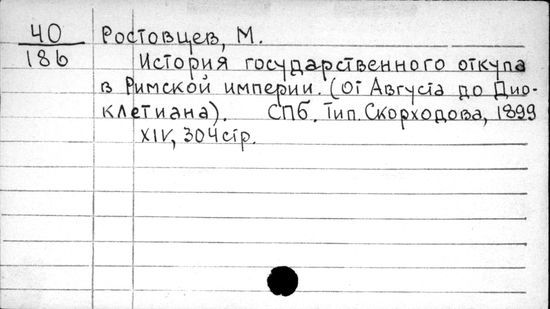 40 Ростовцев, М.
186 История государственного откупа
в Римской империи. (От Августа до Дио-
клетиана). СПб, Тип. Скорходова, 1899
XIV, 304 стр.